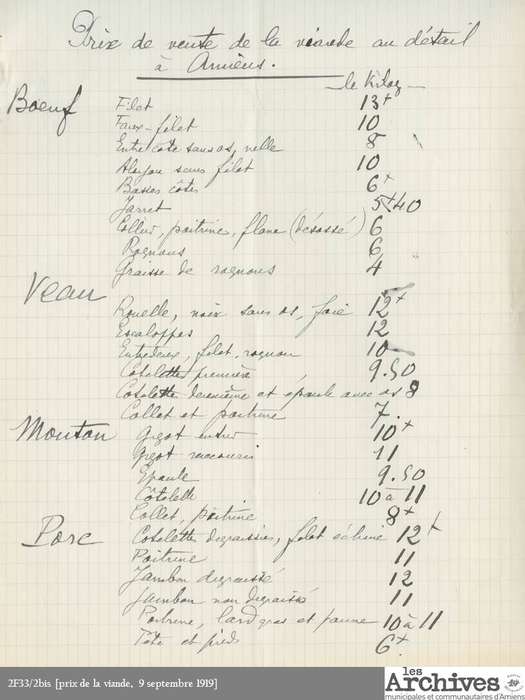 Prix de vente de la viande au détail
à Amiens.
le Kilog
Boeuf
Filet 13+
Faux-filet 10
Entre côte sans os, 8
Aloyau sans filet 10
Basses côtes 6+
Jarret 5+40
Collier, poitrine, flanc (désossé) 6
Rognons 6
Graisse de rognons 4
Veau
Rouelle, noix sans os, foie 12+
Escaloppes 12
Entredeux, filet, rognon 10
Cotelettes première 9.50
Cotelette deuxième et épaule avec os 8
Collet et poitrine 7.
Mouton
Gigot entier 10+
Gigot raccourci 11
Epaule 9.50
Côtelette 10 à 11
Collet, poitrine 8+
Porc
Cotelette degraissée, filet échine 12+
Poitrine 11
Jambon degraissé 12
Jambon non degraissé 11
Poitrine, lard gras et panne 10 à 11
Tête et pieds 6+
2F33/2bis [prix de la viande, 9 septembre 1919]
les Archives
municipales et communautaires d'Amiens